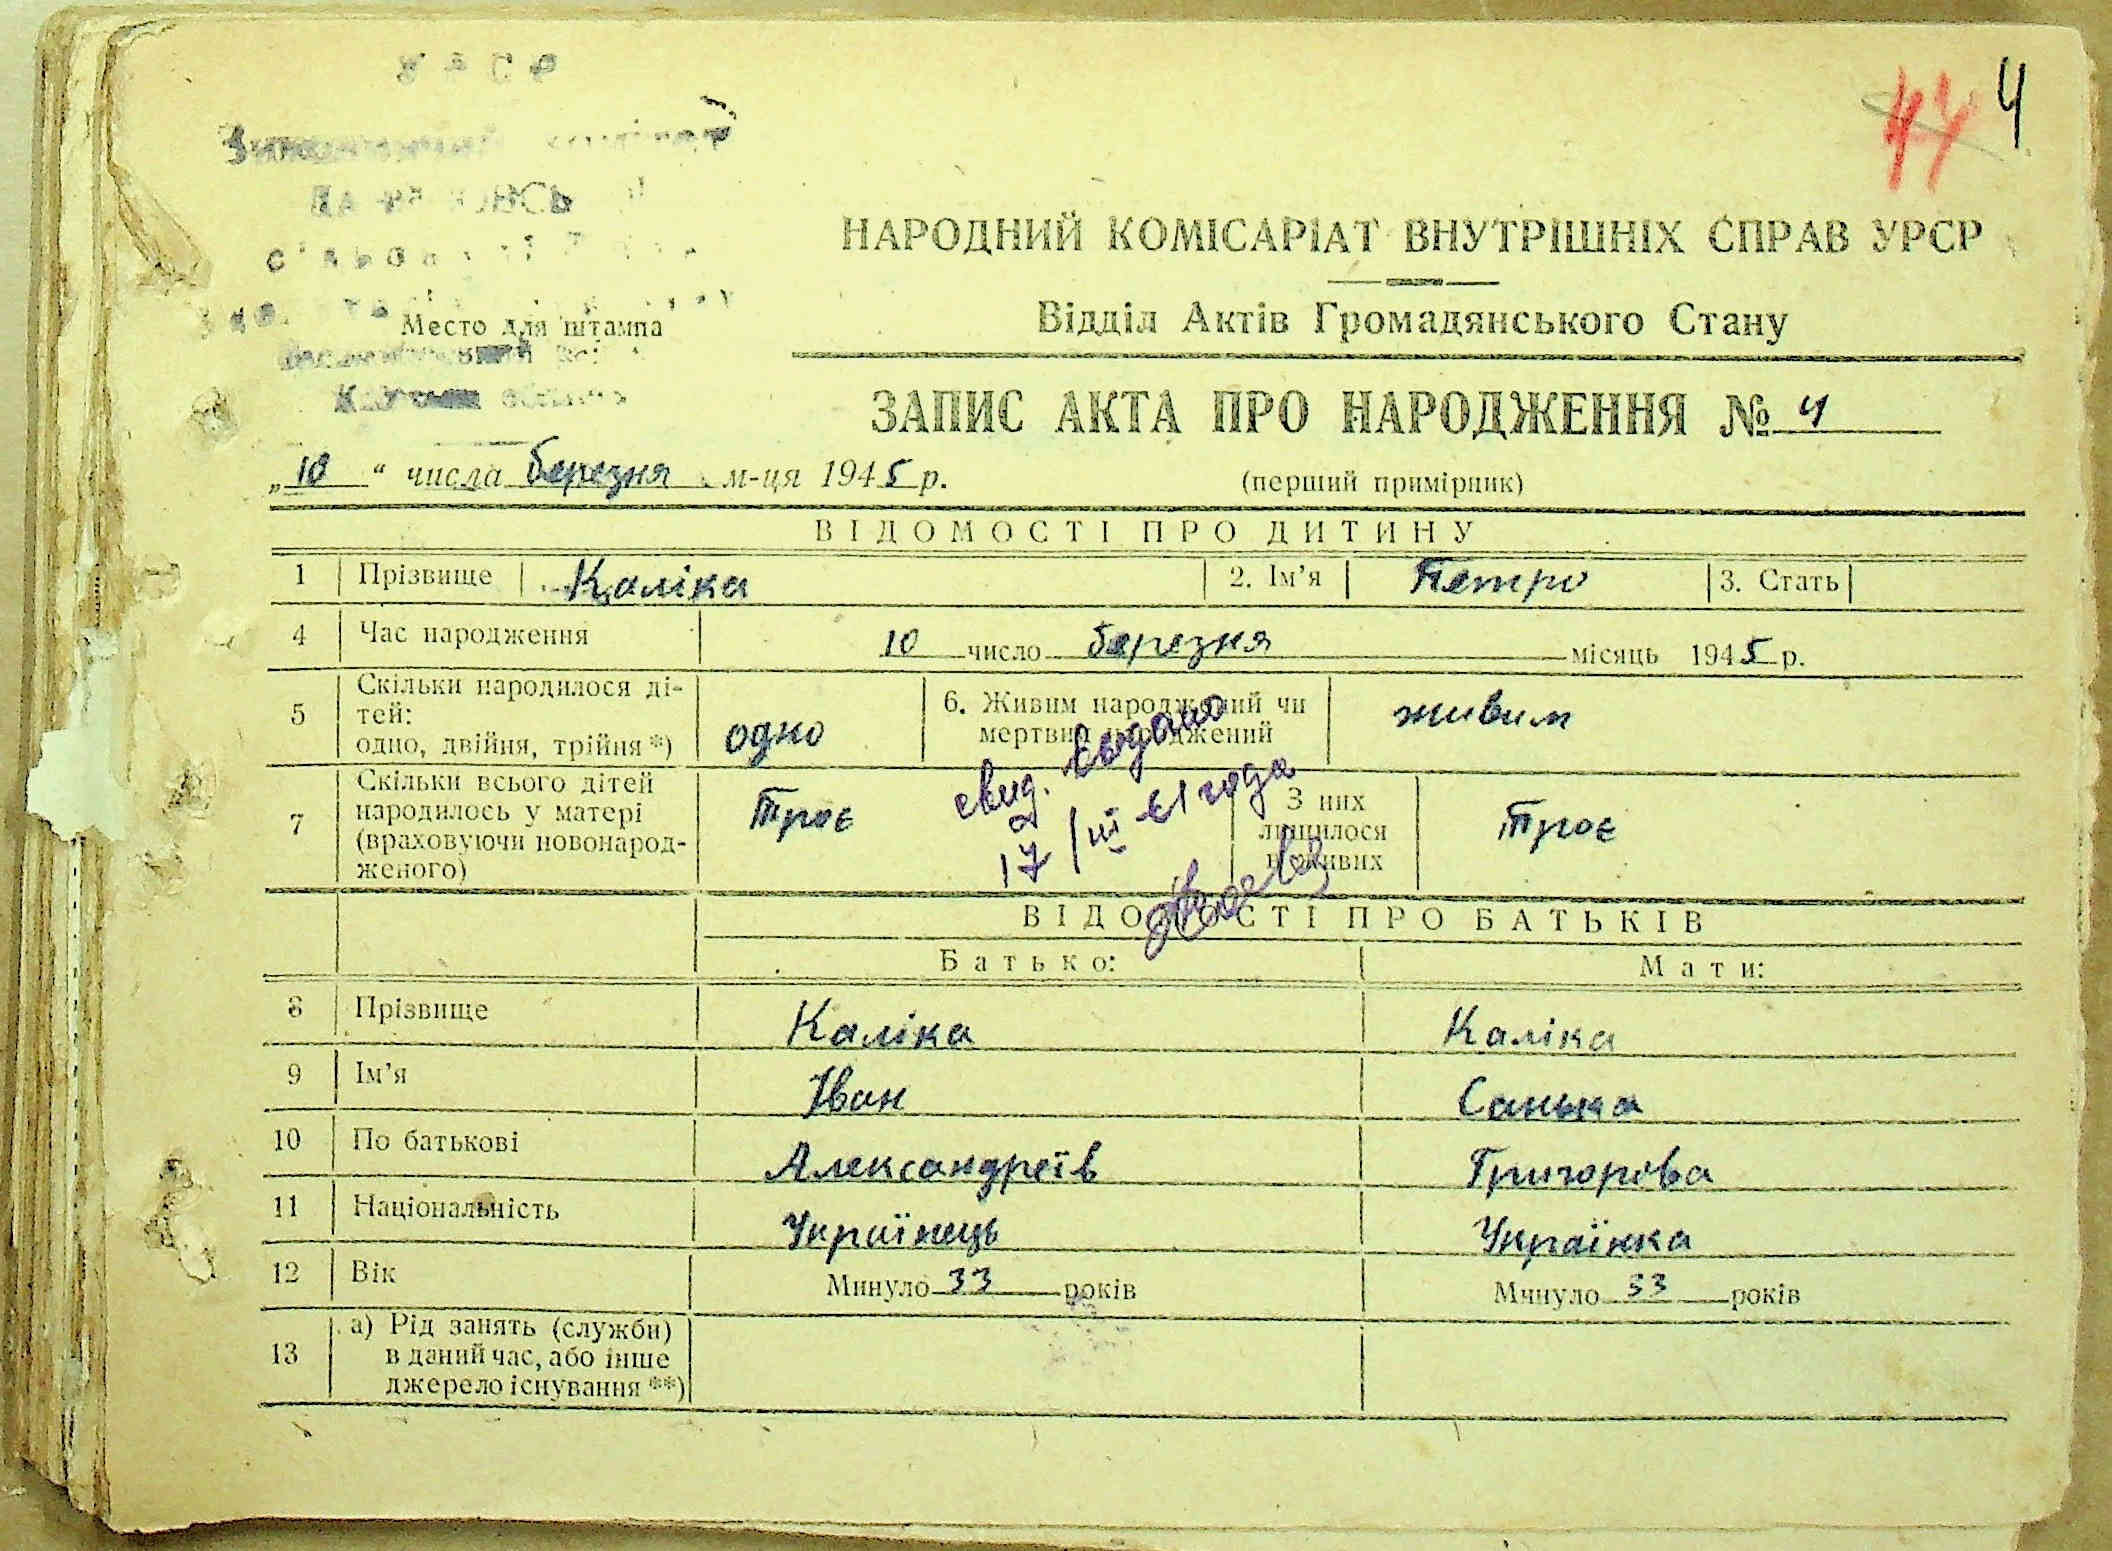 44 4
НАРОДНИЙ КОМІСАРІАТ ВНУТРІШНІХ СПРАВ УРСР
Відділ Актів Громадянського Стану
Место для штампа
ЗАПИС АКТА ПРО НАРОДЖЕННЯ № 4
„10“ числа березня м-ця 1945 р.
(перший примірник)
ВІДОМОСТІ ПРО ДИТИНУ
1 Прізвище Каліка 2. Ім’я Петро 3. Стать
4 Час народження 10 число березня місяць 1945 р.
5 Скільки народилося ді-
тей:
одно, двійня, трійня *) одно
6. Живим народжений чи
мертвим народжений живим
7 Скільки всього дітей
народилось у матері
(враховуючи новонарод-
женого) Троє
З них
лишилося
в живих Троє
свид. выдано
17/III 61 года
ВІДОМОСТІ ПРО БАТЬКІВ
Батько: Мати:
8 Прізвище Каліка Каліка
9 Ім’я Іван Санька
10 По батькові Александреїв Григорова
11 Національність Українець Українка
12 Вік Минуло 33 років Минуло 33 років
13 а) Рід занять (служби)
в даний час, або інше
джерело існування **)